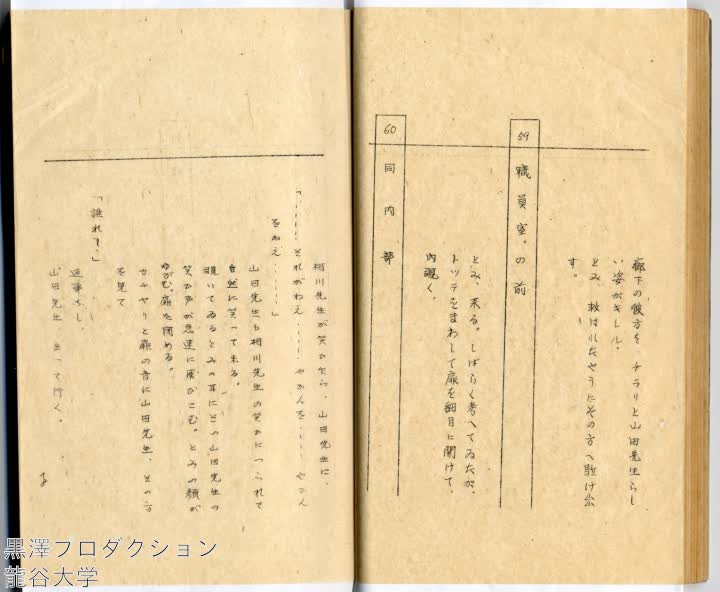 廊下の彼方を、チラリと山田先生らし
い姿がキレル。
とみ、救はれたやうにその方へ駈け出
す。
59 職員室の前
とみ、来る。しばらく考へてゐたが、
トッテをまわして扉を細目に開けて、
内覗く。
60 同内部
相川先生が笑ひ乍ら、山田先生に、
「……それがねえ……やかんを……やかん
をねえ……」
山田先生も相川先生の笑ひにつられて
自然に笑って来る。
覗いてゐるとみの耳にその山田先生の
笑ひ声が急速に飛びこむ。とみの顔が
ゆがむ。扉を閉める。
カチヤリと扉の音に山田先生、その方
を見て
「誰れ？」
返事なし。
山田先生 立って行く。
黒澤プロダクション
龍谷大学